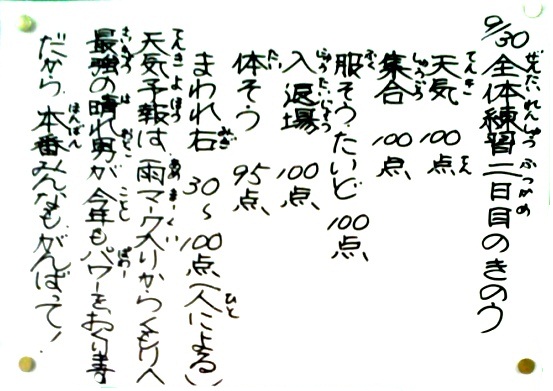 9/30 全体練習二日目のきのう
天気 100点
集合 100点
服そう・たいど 100点
入退場 100点
体そう 95点
まわれ右 30~100点(人による)
天気予報は、雨マーク入りからくもりへ
最強の晴れ男が今年もパワーをおくります
だから、本番みんなもがんばって!